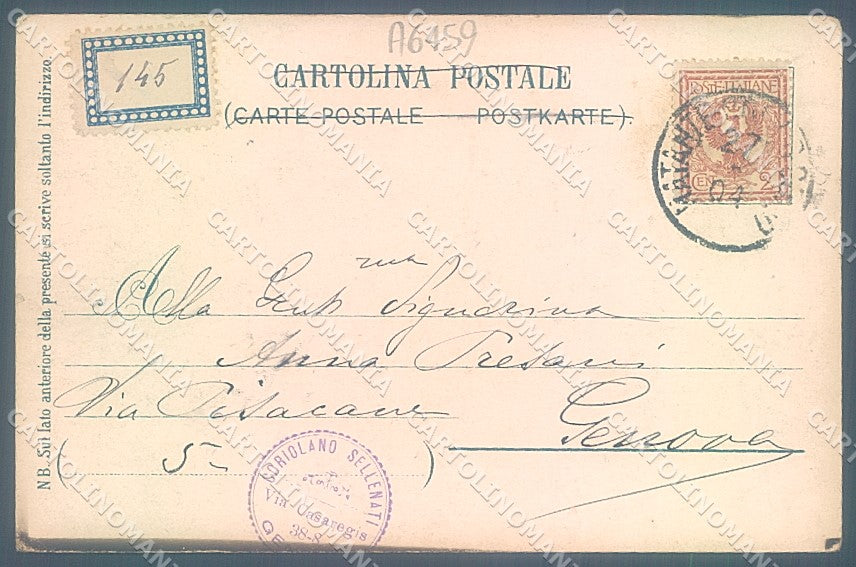 A6459
145
CARTOLINA POSTALE
(CARTE POSTALE POSTKARTE).
POSTE ITALIANE
CENT 2
CATANIA
27
04
NB. Sul lato anteriore della presente si scrive soltanto l'indirizzo.
Alla Gent.ma Signorina
Anna
Via Pisacane Genova
(5-)
CORIOLANO SELLENATI
Via Casaregis
38-8
GE
CARTOLINOMANIA